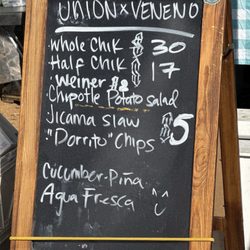 UNION x VENENO
Whole Chik $ 30
Half Chik $ 17
Weiner $8
Chipotle Potato Salad
Jicama Slaw $5
"Dorrito" Chips
Cucumber-Piña
Agua Fresca